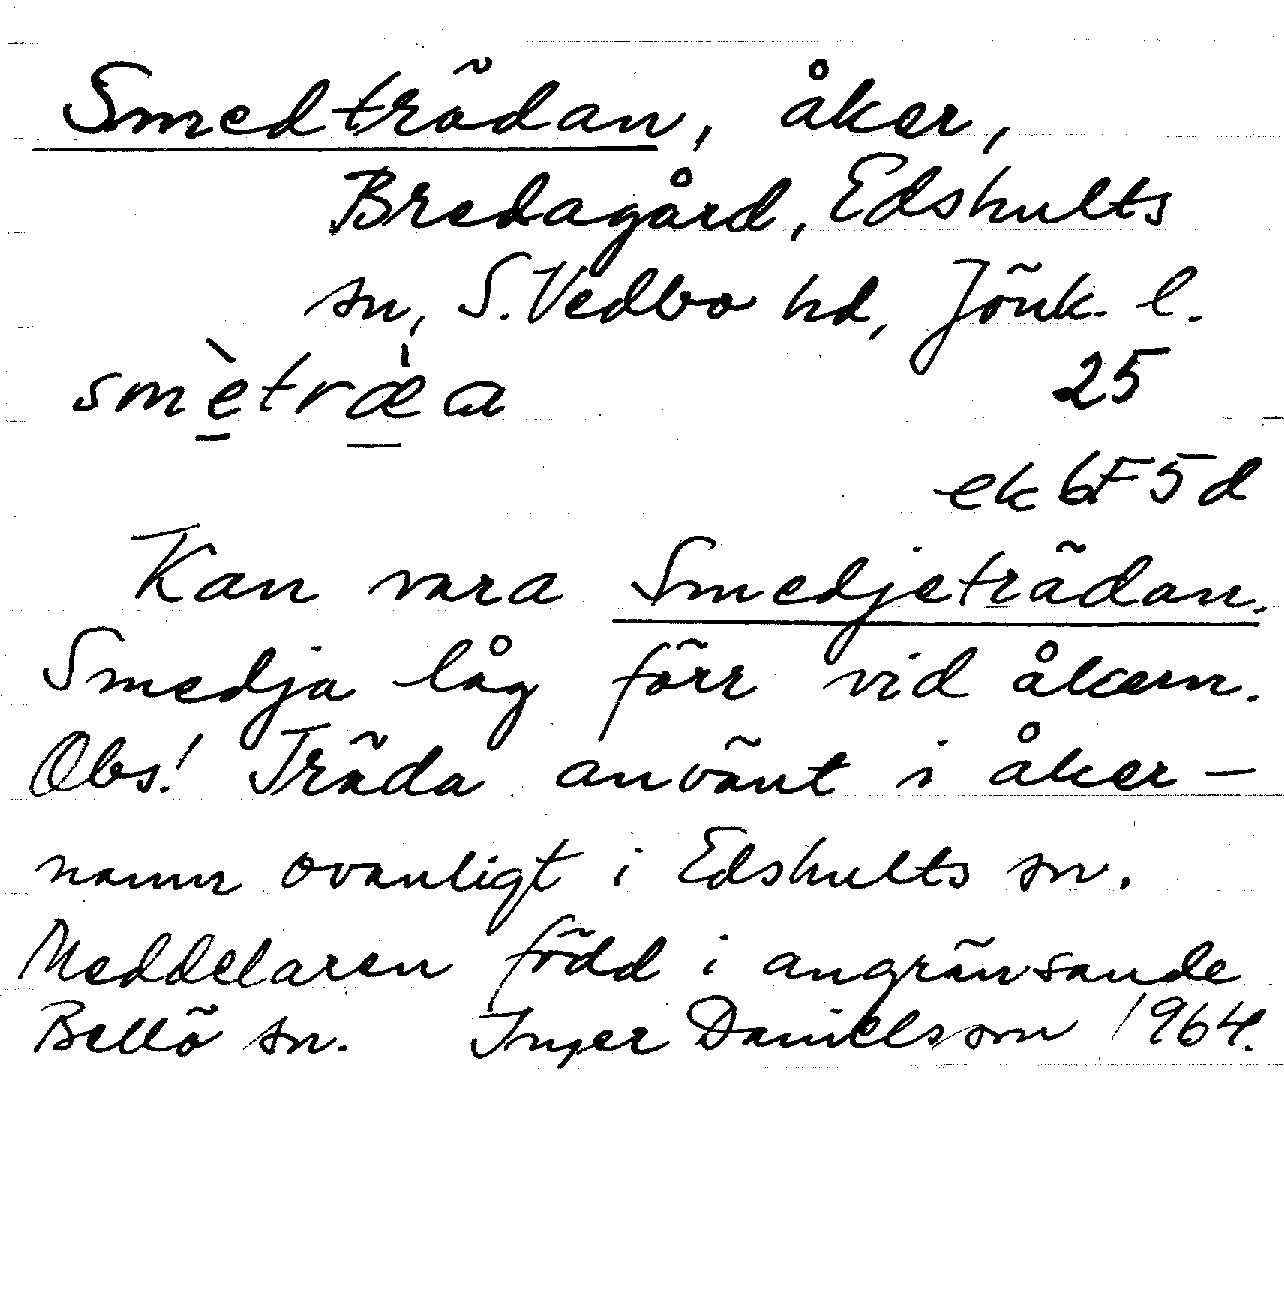 Smedträdan, åker,
Bredagård, Edshults
sn, S. Vedbo hd, Jönk. l.
smè̱træ̱̀a 25
ek 6F5d
Kan vara Smedjeträdan.
Smedja låg förr vid åkern.
Obs! Träda använt i åker-
namn ovanligt i Edshults sn.
Meddelaren född i angränsande
Bellö sn. Inger Danielsson 1964.